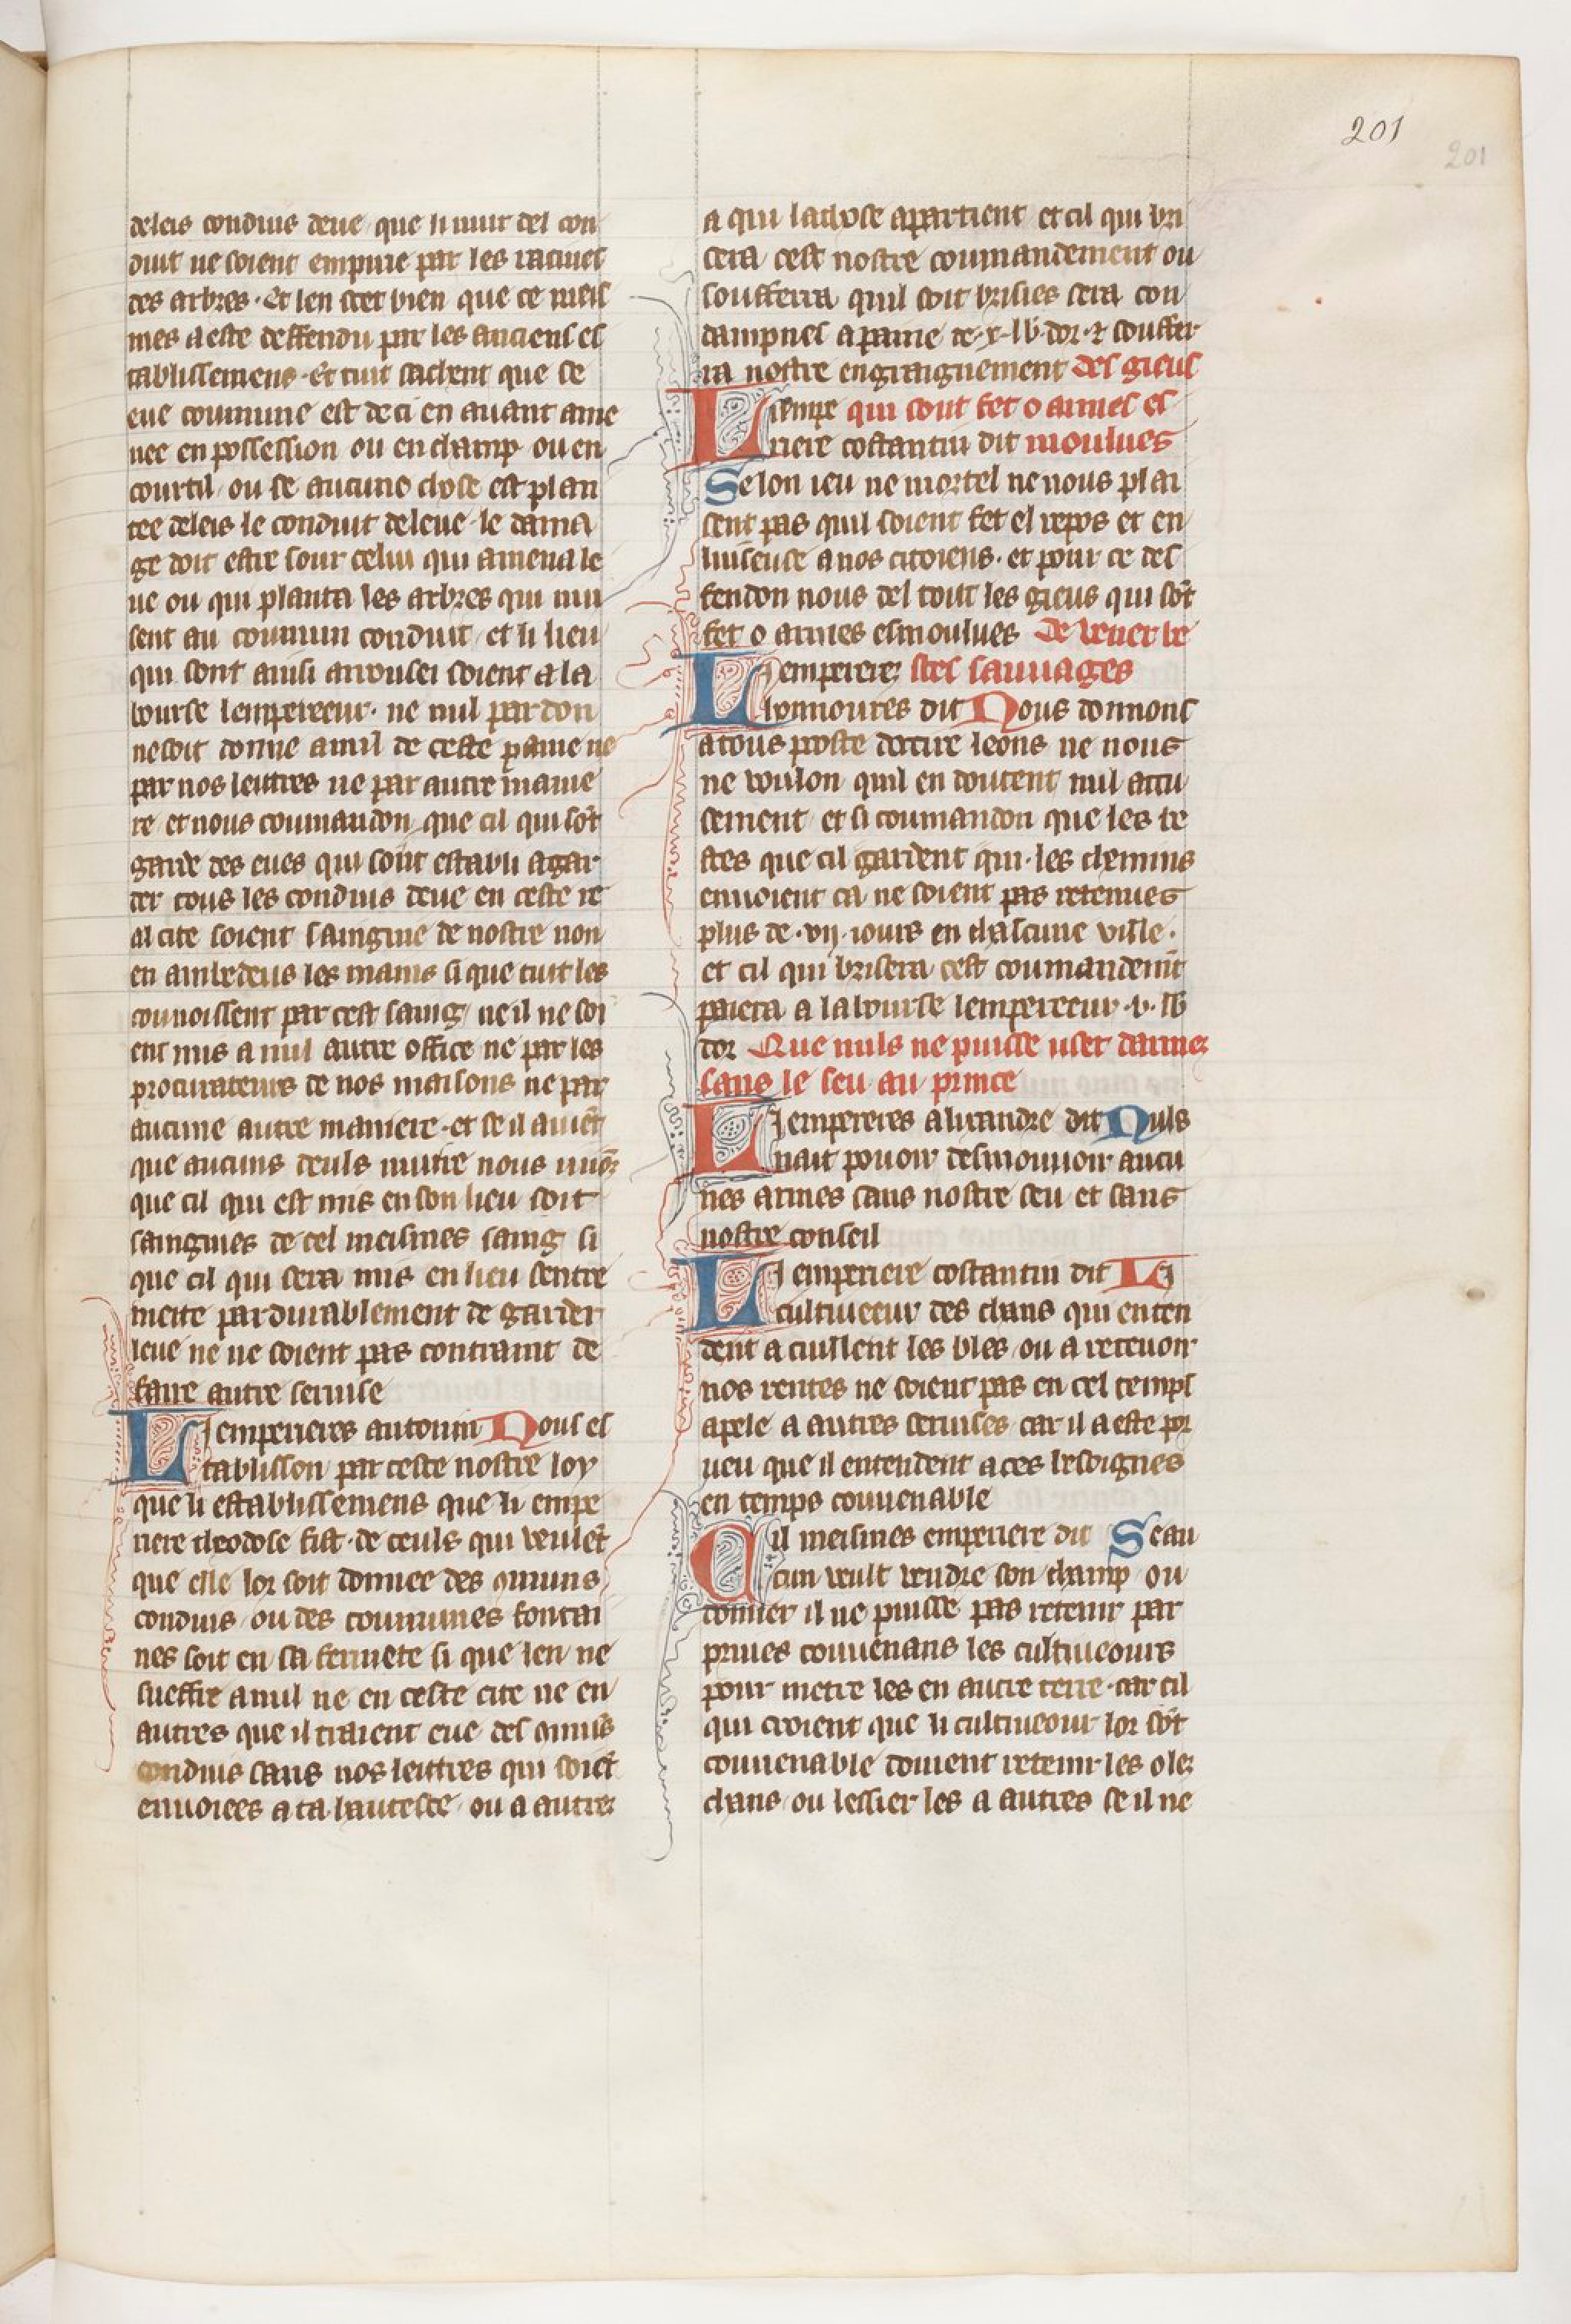 201
201
deleis conduis deue que li mur del con
duit ne soient empirie par les racines
des arbres. Et len scet bien que ce meis
mes a este deffendu par les anciens es
tablissemens. Et tuit sachent que se
eue commune est de ci en auant ame
nee en possession ou en champ ou en
courtil ou se aucuns closes est plan
tee deleis le conduit de leue le dama
ge doit estre sour celui qui amena le
ue ou qui planta les arbres qui nui
sent au commun conduit et li lieu
qui sont ainsi arrousei soient a la
bourse lempereeur. ne nul pardon
ne soit donne a nul de ceste paine ne
par nos leittres ne par autre manie
re et nous coumandon que cil qui sõt
garde des eues qui sont establi a gar
der tous les conduis deue en ceste re
al cite soient saingnie de nostre non
en ambedeus les mains si que tuit les
connoissent par cest saing ne il ne soi
ent mis a nul autre office ne par les
procurateurs de nos maisons ne par
aucune autre maniere. et se il auiẽt
que aucuns deuls muire nous uolõs
que cil qui est mis en son lieu soit
saingnies de cel meismes saing si
que cil qui sera mis en lieu sentre
mette pardurablement de garder
leue ne ne soient pas contraint de
faire autre seruise
Li emperieres antonin Nous es
tablisson par ceste nostre loy
que li establissemens que li empe
riere theodose fist. de ceuls qui veulẽt
que elle lor soit donnee des cõmuns
conduis ou des communes fontai
nes soit en sa fermete si que len ne
sueffre a nul ne en ceste cite ne en
autres que il traient eue des cõmũs
conduis sans nos leittres qui soiẽt
enuoiees a ta hautesce ou a autres
a qui la chose apartient et cil qui bri
sera cest nostre coumandement ou
soufferra quil soit brisies sera con
dampnes a paine de .x. lb. dor. ⁊ souffer
ra nostre engraignement des gieus
Li empe qui sont fet o armes es
riere costantin dit moulues
Selon ieu ne mortel ne nous plai
sent pas quil soient fet el repos et en
luiseuse a nos citoiens. et pour ce def
fendon nous del tout les gieus qui sõt
fet o armes esmoulues De vener be
Li emperieres stes sauuages
honnoures dit Nous donnons
a tous poste docire leons ne nous
ne voulon quil en doutent nul accu
sement et si coumandon que les be
stes que cil gardent qui les chemins
enuoient ca ne soient pas retenues
plus de .vij. iours en chascune ville.
et cil qui brisera cest coumandemẽt
paiera a la bourse lempereeur .v. lb
dor Que nuls ne puisse user darmes
sans le seu au prince
Li empereres alixandre dit Nuls
nait pouoir desmouuoir aucu
nes armes sans nostre seu et sans
nostre conseil
Li emperiere costantin dit Li
cultiueeur des chans qui enten
dent a cuillent les bles ou a receuoir
nos rentes ne soient pas en cel temps
apele a autres seruises car il a este por
ueu que il entendent a ces besoignes
en temps conuenable
Cil meismes emperiere dit Se au
cun veult vendre son champ ou
donner il ne puisse pas retenir par
priues conuenans les cultiueours
pour metre les en autre terre. car cil
qui croient que li cultiueour lor sõt
conuenable doiuent retenir les o les
chans ou lessier les a autres se il ne